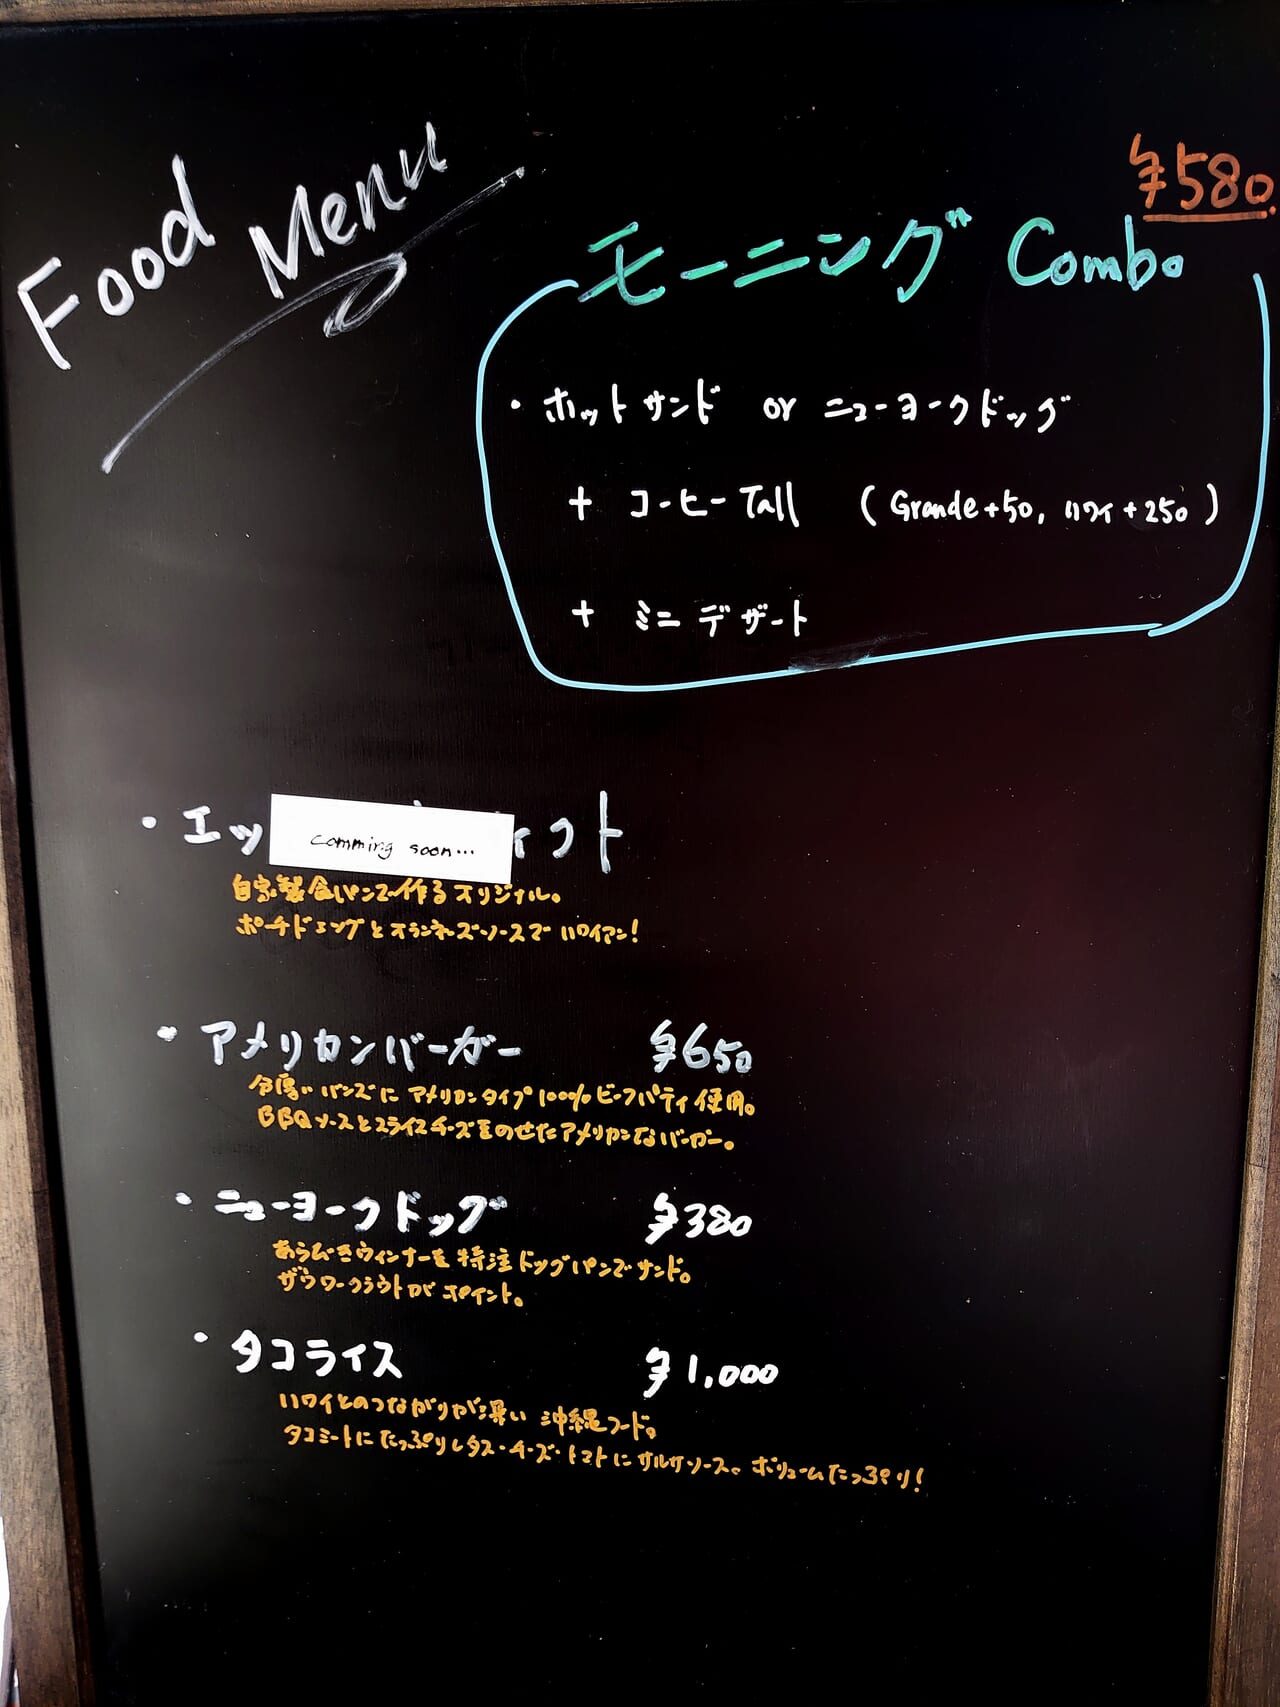 Food Menu
¥580.
モーニング Combo
・ホットサンド or ニューヨークドッグ
+ コーヒー Tall (Grande+50, ハワイ+250)
+ ミニデザート
・エッ
comming soon...
ィクト
自家製食パンで作るオリジナル。
ポーチドエッグとオランネーズソースでハワイアン!
・アメリカンバーガー ¥650
バンズにアメリカンタイプ100%ビーフパティ使用。
BBQソースとスライスチーズをのせたアメリカンなバーガー。
・ニューヨークドッグ ¥380
あらびきウィンナーを特注ドッグパンでサンド。
ザワークラウトがポイント。
・タコライス ¥1,000
ハワイとのつながりが深い沖縄フード。
タコミートにたっぷりレタス・チーズ・トマトにサルサソース。ボリュームたっぷり!